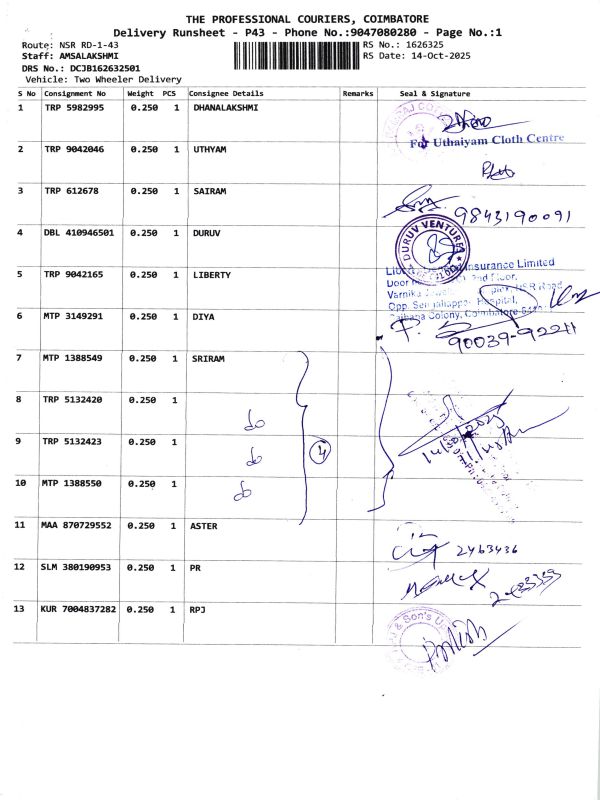 THE PROFESSIONAL COURIERS, COIMBATORE
Delivery Runsheet - P43 - Phone No.:9047080280 - Page No.:1
Route: NSR RD-1-43 RS No.: 1626325
Staff: AMSALAKSHMI RS Date: 14-Oct-2025
DRS No.: DCJB162632501
Vehicle: Two Wheeler Delivery
S No Consignment No Weight PCS Consignee Details Remarks Seal & Signature
1 TRP 5982995 0.250 1 DHANALAKSHMI
For Uthaiyam Cloth Centre
2 TRP 9042046 0.250 1 UTHYAM
3 TRP 612678 0.250 1 SAIRAM
9843190091
4 DBL 410946501 0.250 1 DURUV
DURUV VENTURES
5 TRP 9042165 0.250 1 LIBERTY
Insurance Limited
2nd Floor,
Varnika NSR Road
Opp. Hospital,
Saibaba Colony, Coimbatore
6 MTP 3149291 0.250 1 DIYA
90039-92211
7 MTP 1388549 0.250 1 SRIRAM
8 TRP 5132420 0.250 1
do
9 TRP 5132423 0.250 1
do 4
14/10/2025
10 MTP 1388550 0.250 1
do
11 MAA 870729552 0.250 1 ASTER
2463436
12 SLM 380190953 0.250 1 PR
13 KUR 7004837282 0.250 1 RPJ
& Son's